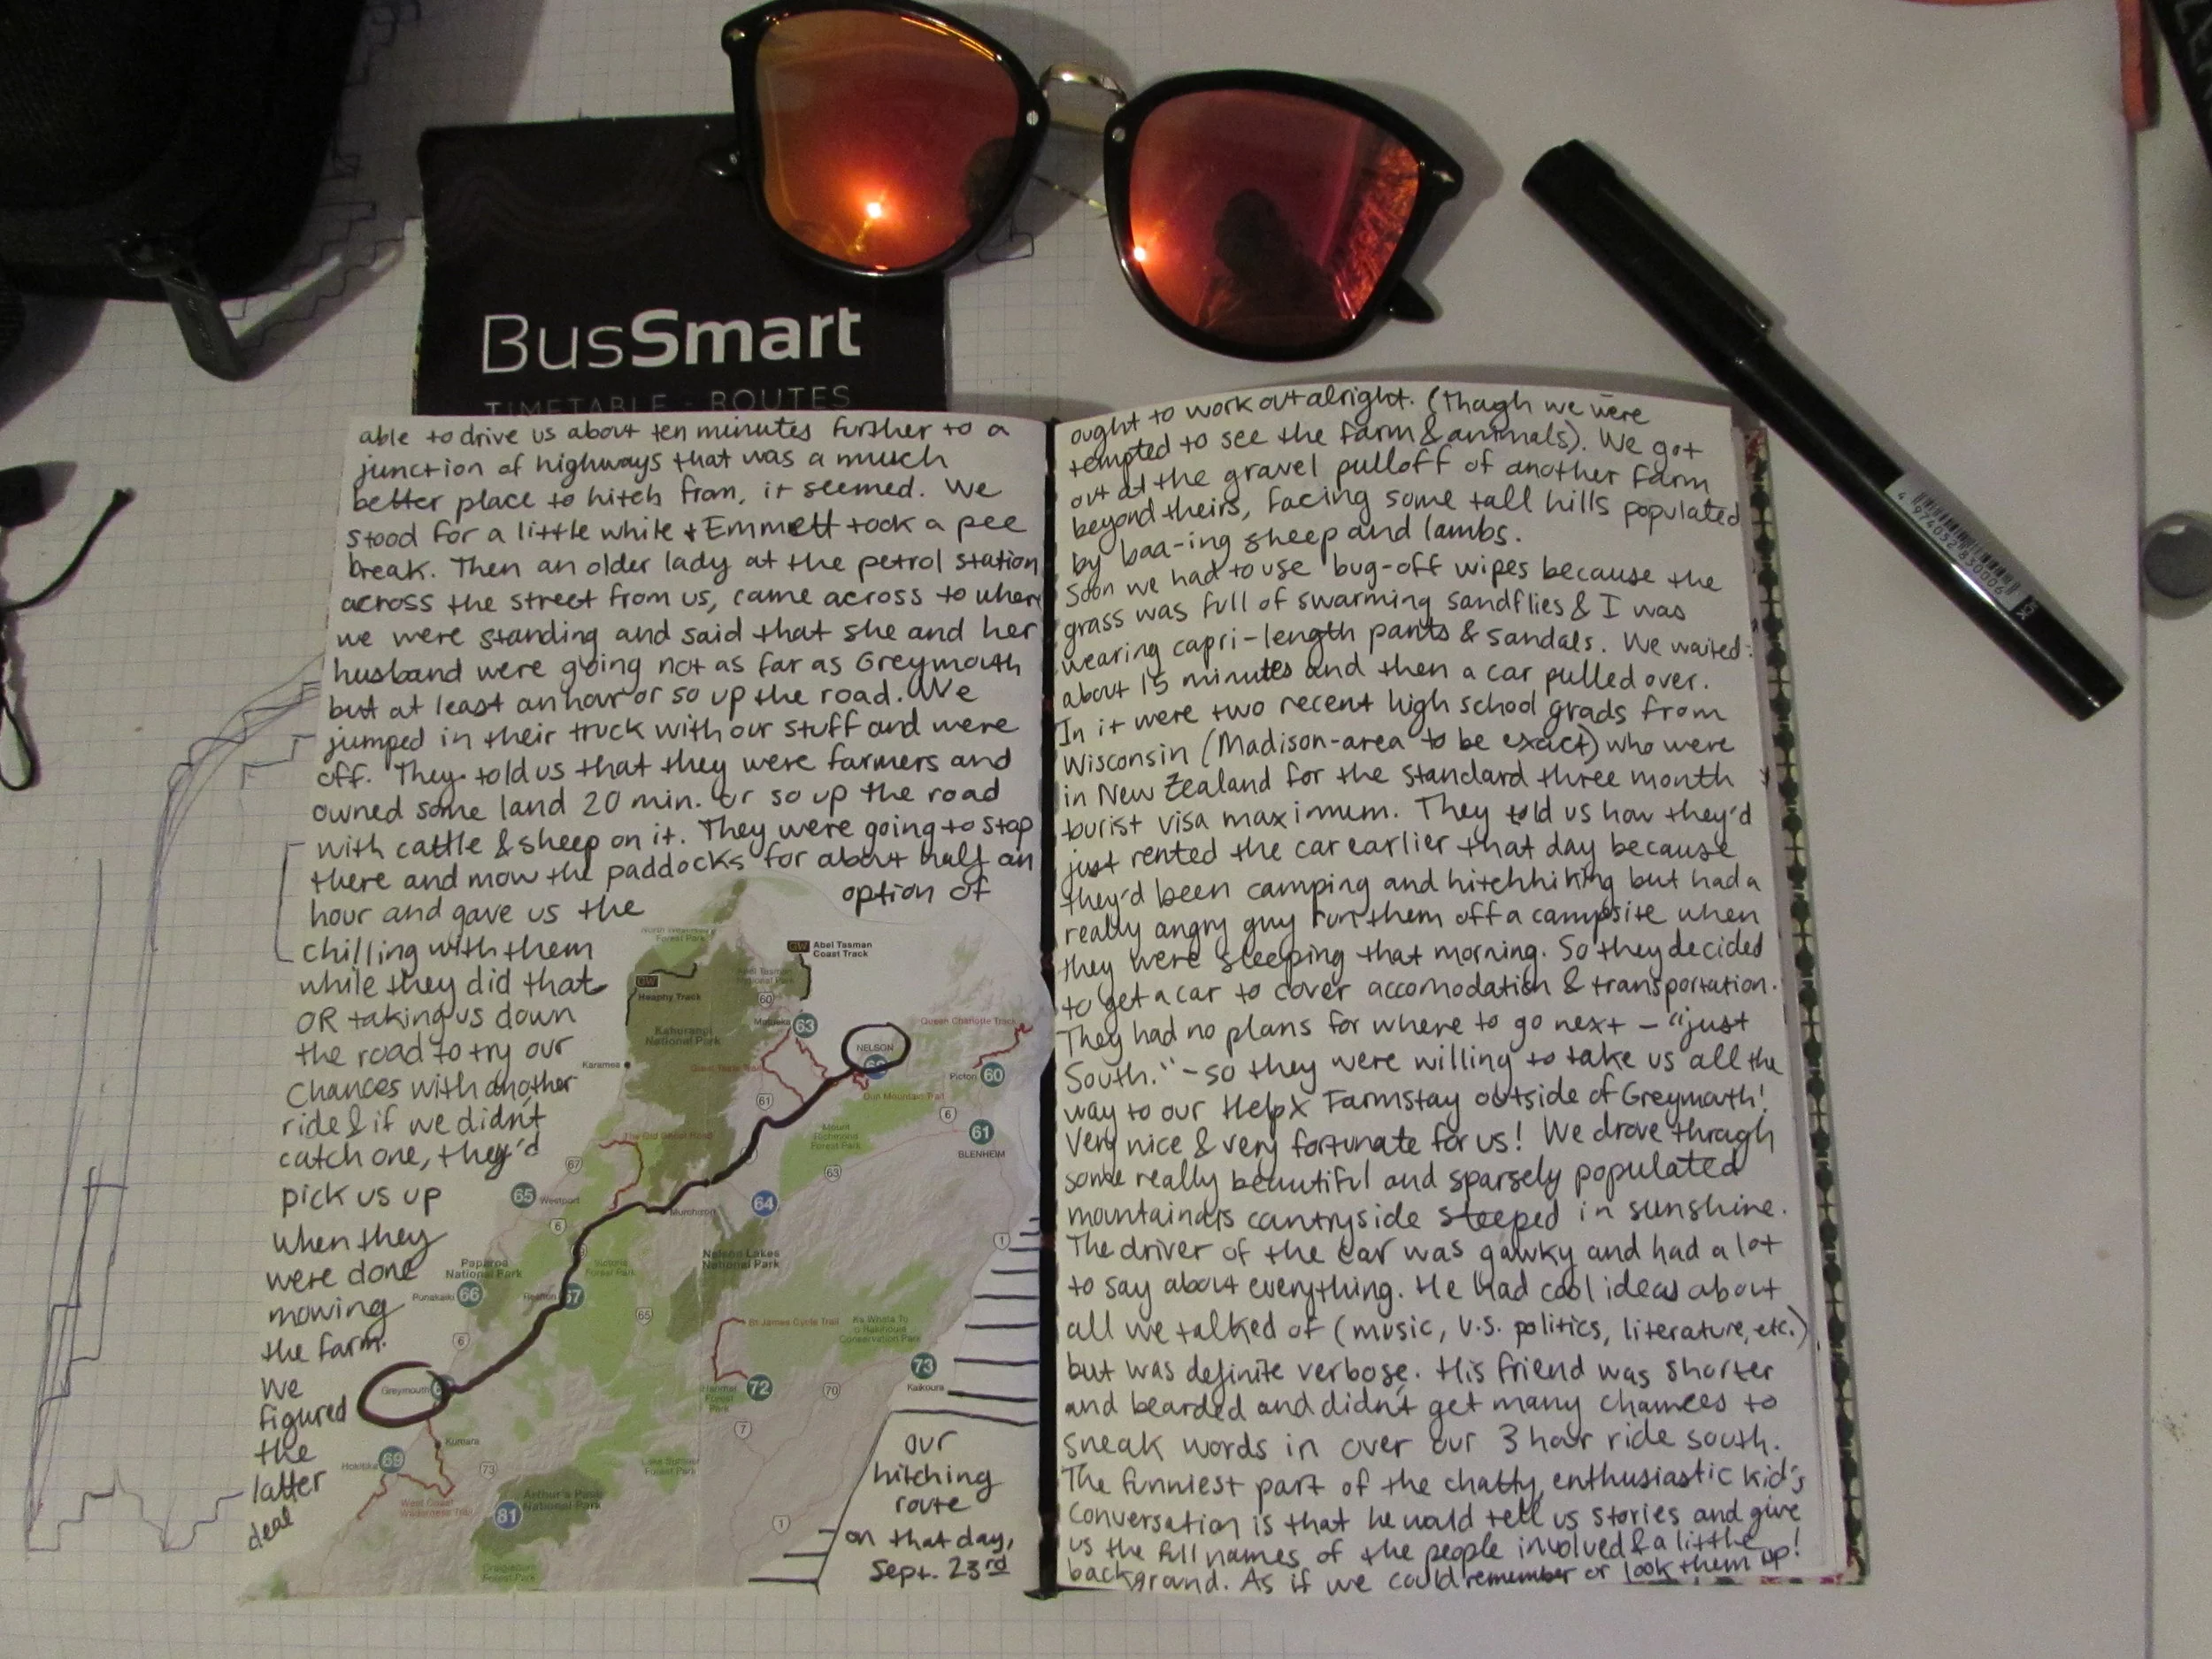 BusSmart
TIMETABLE - ROUTES
able to drive us about ten minutes further to a
junction of highways that was a much
better place to hitch from, it seemed. We
stood for a little while & Emmett took a pee
break. Then an older lady at the petrol station
across the street from us, came across to where
we were standing and said that she and her
husband were going not as far as Greymouth
but at least an hour or so up the road. We
jumped in their truck with our stuff and were
off. They told us that they were farmers and
owned some land 20 min. or so up the road
with cattle & sheep on it. They were going to stop
there and mow the paddocks for about half an
hour and gave us the option of
chilling with them
while they did that
OR taking us down
the road to try our
chances with another
ride & if we didn't
catch one, they'd
pick us up
when they
were done
mowing
the farm.
We
figured
the
latter
deal
North West Nelson
Forest Park
GW
Abel Tasman
Coast Track
GW
Heaphy Track
Abel Tasman
National Park
60
Motueka
63
Kahurangi
National Park
NELSON
Queen Charlotte Track
Karamea
Great Taste Trail
Picton
60
Dun Mountain Trail
61
6
Mount
Richmond
Forest Park
61
BLENHEIM
The Old Ghost Road
67
63
65
Westport
64
6
Murchison
1
Nelson Lakes
National Park
Victoria
Forest Park
Paparoa
National Park
Punakaiki
66
Reefton
67
65
St James Cycle Trail
Ka Whata Tu
o Rakihouia
Conservation Park
6
73
Kaikoura
Hanmer
Forest
Park
72
70
Greymouth
7
Kumara
Hokitika
69
73
Lake Sumner
Forest Park
West Coast
Wilderness Trail
Arthur's Pass
National Park
81
1
Craigieburn
Forest Park
our
hitching
route
on that day,
Sept. 23rd
ought to work out alright. (Though we were
tempted to see the farm & animals). We got
out at the gravel pulloff of another farm
beyond theirs, facing some tall hills populated
by baa-ing sheep and lambs.
Soon we had to use bug-off wipes because the
grass was full of swarming sandflies & I was
wearing capri-length pants & sandals. We waited
about 15 minutes and then a car pulled over.
In it were two recent high school grads from
Wisconsin (Madison-area to be exact) who were
in New Zealand for the standard three month
tourist visa maximum. They told us how they'd
just rented the car earlier that day because
they'd been camping and hitchhiking but had a
really angry guy run them off a campsite when
they were sleeping that morning. So they decided
to get a car to cover accomodation & transportation.
They had no plans for where to go next - "just
South." - so they were willing to take us all the
way to our HelpX Farmstay outside of Greymouth!
Very nice & very fortunate for us! We drove through
some really beautiful and sparsely populated
mountainous countryside steeped in sunshine.
The driver of the car was gawky and had a lot
to say about everything. He had cool ideas about
all we talked of (music, U.S. politics, literature, etc.)
but was definite verbose. His friend was shorter
and bearded and didn't get many chances to
sneak words in over our 3 hour ride south.
The funniest part of the chatty, enthusiastic kid's
conversation is that he would tell us stories and give
us the full names of the people involved & a little
background. As if we could remember or look them up!